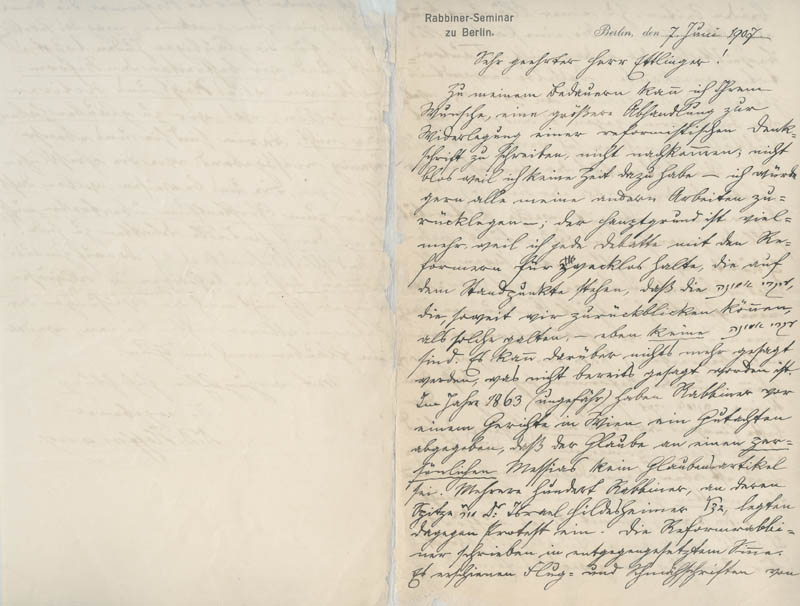 Rabbiner-Seminar
zu Berlin.
Berlin, den 7. Juni 1907
Sehr geehrter Herr Ettlinger!
Zu meinem Bedauern kann ich Ihrem
Wunsche, eine größere Abhandlung zur
Widerlegung einer reformistischen Denk-
schrift zu schreiben, nicht nachkommen; nicht
blos weil ich keine Zeit dazu habe – ich würde
gern alle meine andern Arbeiten zu-
rücklegen –; der Hauptgrund ist viel-
mehr, weil ich jede Debatte mit den Re-
formern für zwecklos halte, die auf
dem Standpunkte stehen, daß die עקרי אמונה
die, soweit wir zurückblicken können,
als solche galten, – eben keine עקרי אמונה
sind. Es kann darüber nichts mehr gesagt
werden, was nicht bereits gesagt worden ist.
Im Jahre 1863 (ungefähr) haben Rabbiner vor
einem Gerichte in Wien ein Gutachten
abgegeben, daß der Glaube an einen per-
sönlichen Messias kein Glaubensartikel
sei. Mehrere hundert Rabbiner, an deren
Spitze Dr. Israel Hildesheimer זצ"ל, legten
dagegen Protest ein. Die Reformrabbi-
ner schrieben in entgegengesetztem Sinne.
Es erschienen Flug- und Schmähschriften von